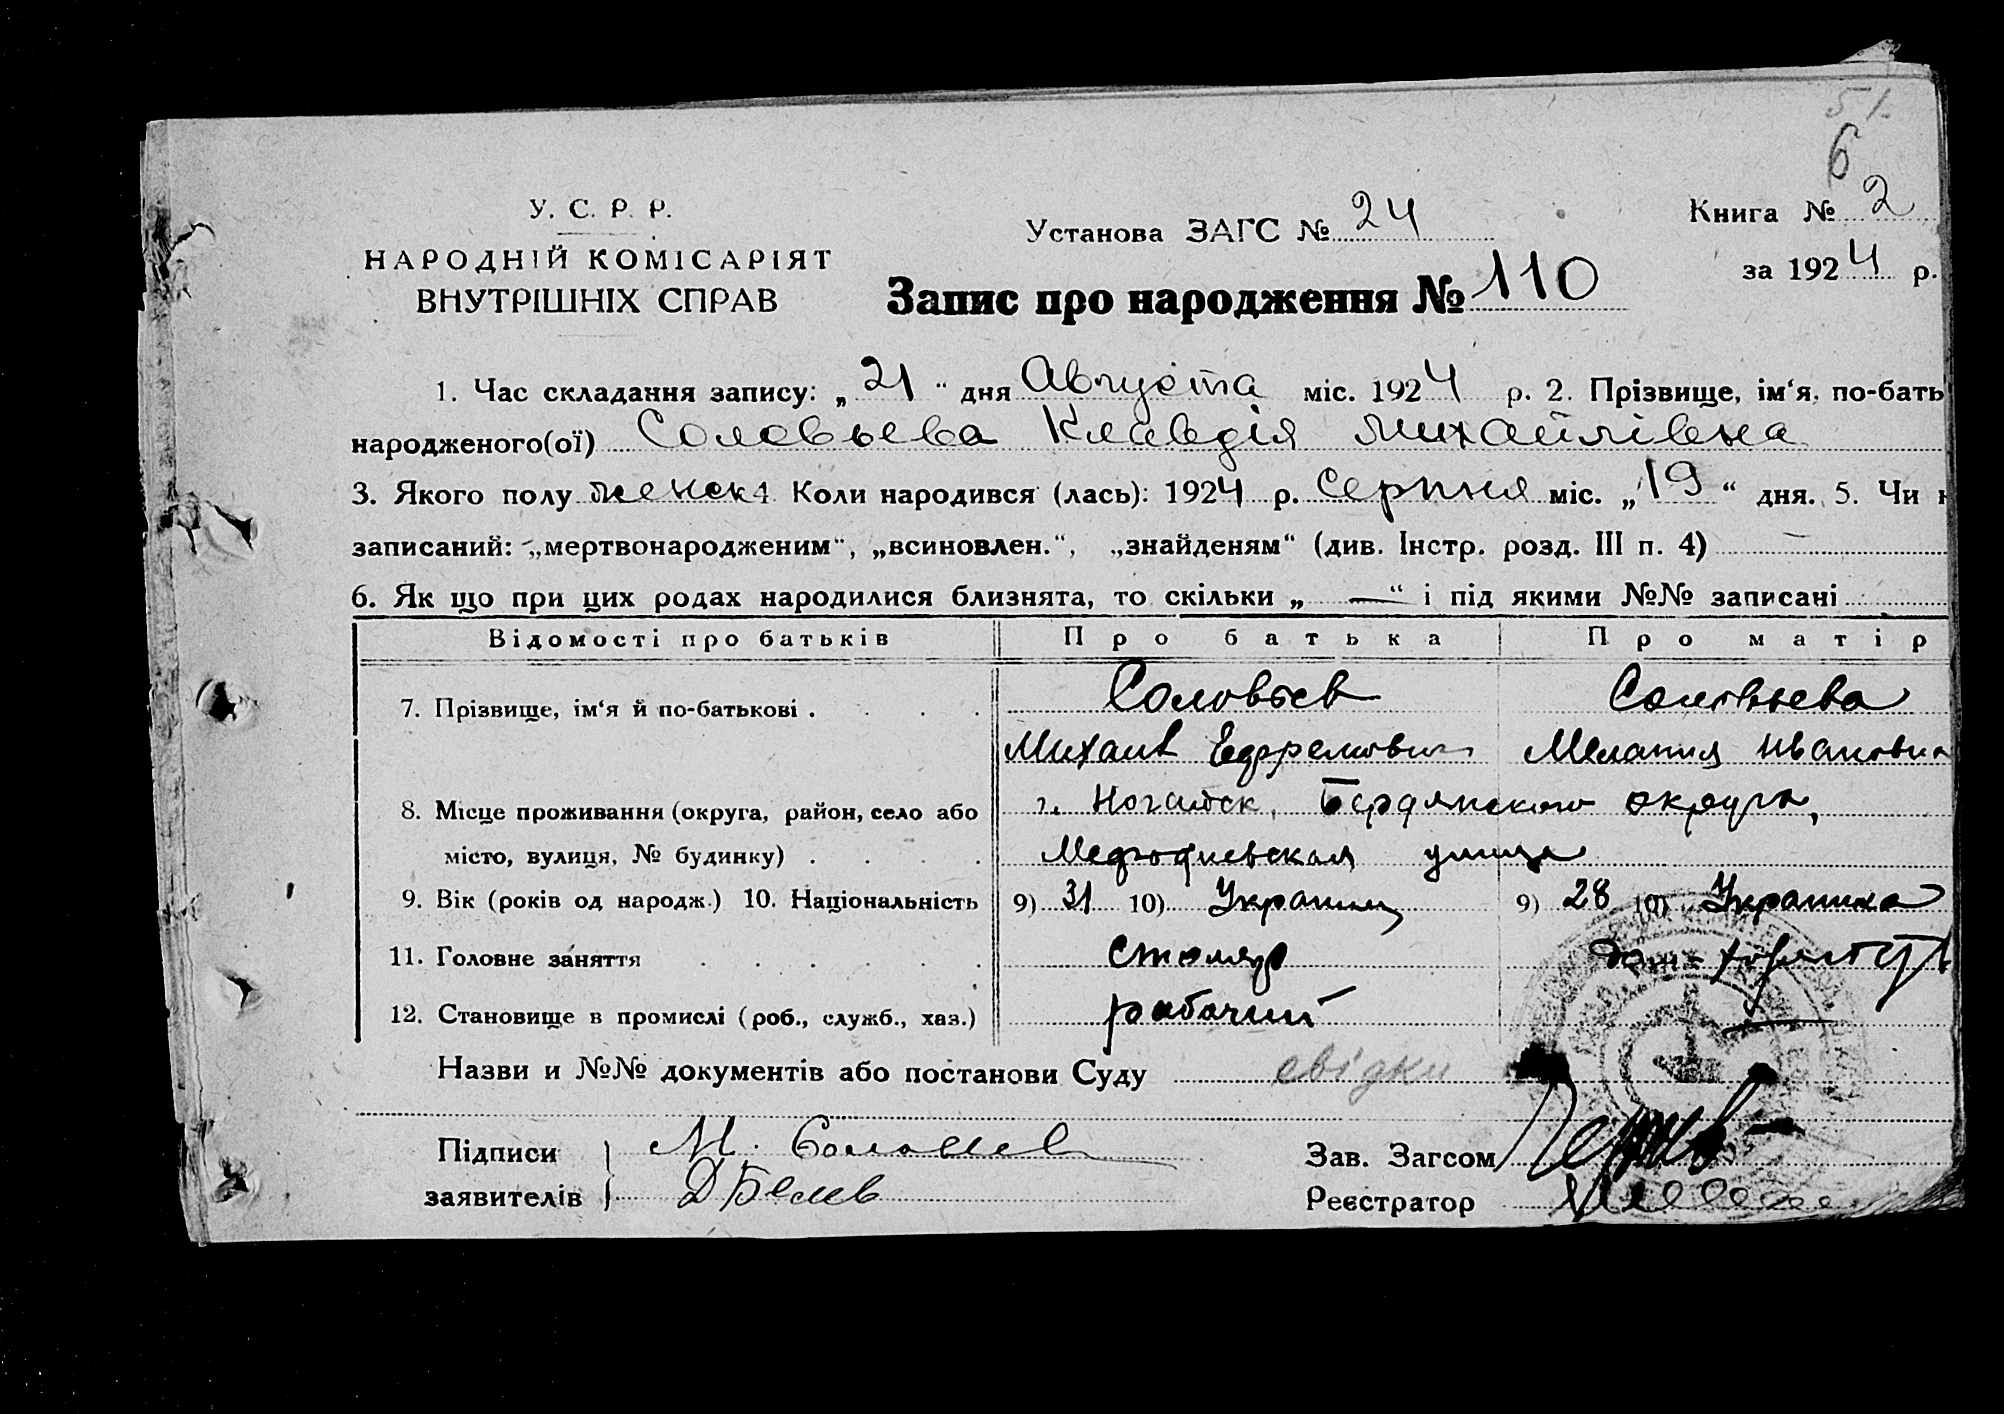 51.
6
У. С. Р. Р.
НАРОДНІЙ КОМІСАРІЯТ
ВНУТРІШНІХ СПРАВ
Установа ЗАГС № 24
Книга № 2
за 1924 р.
Запис про народження № 110
1. Час складання запису: „21“ дня Августа міс. 1924 р. 2. Прізвище, ім‘я, по-бать
народженого(ої) Соловьева Клавдія Михайлівна
3. Якого полу женск 4. Коли народився (лась): 1924 р. Серпня міс. „19“ дня. 5. Чи н
записаний: „мертвонародженим“, „всиновлен.“, „знайденям“ (див. Інстр. розд. III п. 4) —
6. Як що при цих родах народилися близнята, то скільки „—“ і під якими №№ записані
Відомості про батьків Про батька Про матір
7. Прізвище, ім‘я й по-батькові . . . . Соловьев Соловьева
Михаил Ефремович Мелания Ивановна
8. Місце проживання (округа, район, село або г. Ногайск, Бердянского округа,
місто, вулиця, № будинку) . . . . Мефодиевская улица
9. Вік (років од народж.) 10. Національність 9) 31 10) Украинец 9) 28 10) Украинка
11. Головне заняття . . . . . столяр дом-
12. Становище в промислі (роб., служб., хаз.) рабочий —
Назви и №№ документів або постанови Суду свідки
Підписи М. Соловьев Зав. Загсом
заявителів Д Белев Реєстратор